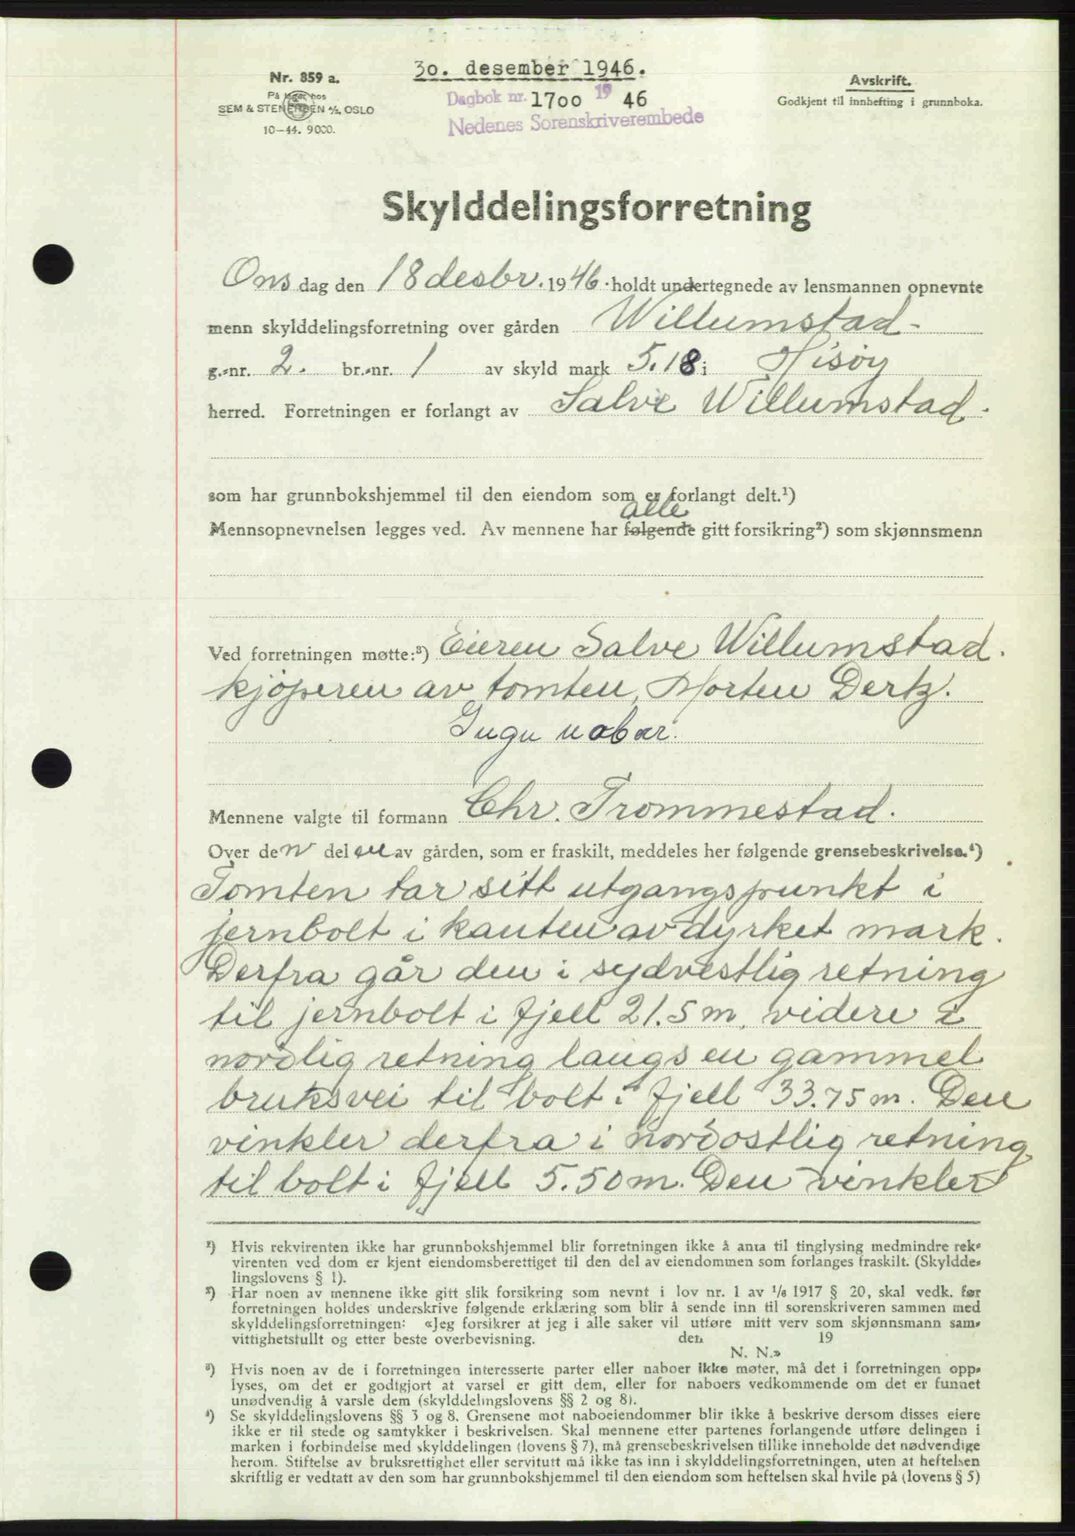 30. desember 1946.
Nr. 859 a.
På lager hos
SEM & STENERSEN A/S, OSLO
10-44. 9000.
Dagbok nr. 1700 19 46
Nedenes Sorenskriverembede
Avskrift.
Godkjent til innhefting i grunnboka.
Skylddelingsforretning
Onsdag den 18 desbr. 1946. holdt undertegnede av lensmannen opnevnte
menn skylddelingsforretning over gården Willumstad.
g.-nr. 2. br.-nr. 1 av skyld mark 5.18 i Hisøy
herred. Forretningen er forlangt av Salve Willumstad.
som har grunnbokshjemmel til den eiendom som er forlangt delt.¹)
alle
Mennsopnevnelsen legges ved. Av mennene har følgende gitt forsikring²) som skjønnsmenn
Ved forretningen møtte:³) Eieren Salve Willumstad.
kjøperen av tomten, Morten Dertz.
Ingen naboer.
Mennene valgte til formann Chr. Trommestad.
Over den delen av gården, som er fraskilt, meddeles her følgende grensebeskrivelse.⁴)
Tomten tar sitt utgangspunkt i
jernbolt i kanten av dyrket mark.
Derfra går den i sydvestlig retning
til jernbolt i fjell 21.5 m, videre i
nordlig retning langs en gammel
bruksvei til bolt i fjell 33.75 m. Den
vinkler derfra i nordostlig retning
til bolt i fjell 5.50 m. Den vinkler
¹) Hvis rekvirenten ikke har grunnbokshjemmel blir forretningen ikke å anta til tinglysing medmindre rek-
virenten ved dom er kjent eiendomsberettiget til den del av eiendommen som forlanges fraskilt. (Skyldde-
lingslovens § 1).
²) Har noen av mennene ikke gitt slik forsikring som nevnt i lov nr. 1 av 1/6 1917 § 20, skal vedk. før
forretningen holdes underskrive følgende erklæring som blir å sende inn til sorenskriveren sammen med
skylddelingsforretningen: «Jeg forsikrer at jeg i alle saker vil utføre mitt verv som skjønnsmann sam-
vittighetsfullt og etter beste overbevisning. den 19
N. N.»
³) Hvis noen av de i forretningen interesserte parter eller naboer ikke møter, må det i forretningen opp-
lyses, om det er godtgjort at varsel er gitt dem, eller for naboers vedkommende om det er funnet
unødvendig å varsle dem (skylddelingslovens §§ 2 og 8).
⁴) Se skylddelingslovens §§ 3 og 8. Grensene mot naboeiendommer blir ikke å beskrive dersom disses eiere
ikke er til stede og samtykker i beskrivelsen. Skal mennene etter partenes forlangende utføre delingen i
marken i forbindelse med skylddelingen (lovens § 7), må grensebeskrivelsen tillike inneholde det nødvendige
herom. Stiftelse av bruksrettighet eller servitutt må ikke tas inn i skylddelingsforretningen, uten at heftelsen
skriftlig er vedtatt av den som har grunnbokshjemmel til den eiendom som heftelsen skal hvile på (lovens § 5)